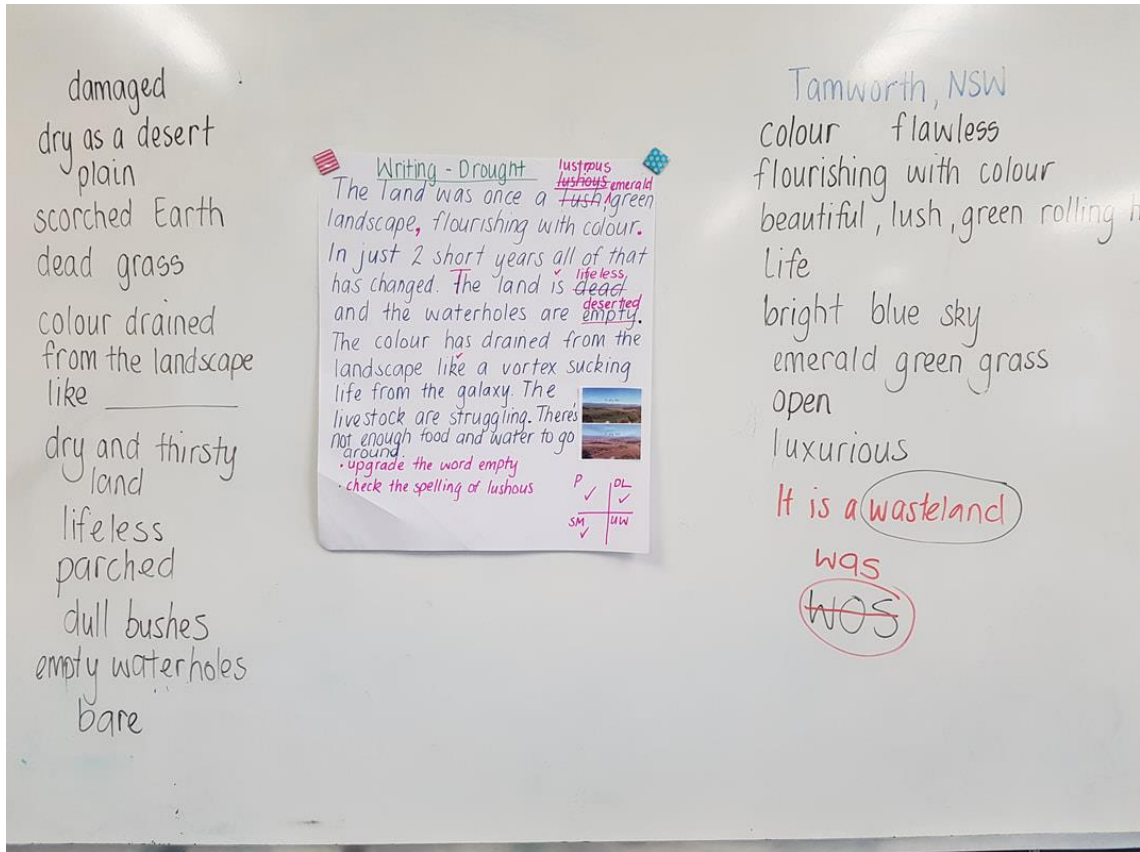 damaged
dry as a desert
plain
scorched Earth
dead grass
colour drained
from the landscape
like ________
dry and thirsty
land
lifeless
parched
dull bushes
empty waterholes
bare
Writing - Drought
lustrous
lushous emerald
The land was once a lush, green
landscape, flourishing with colour.
In just 2 short years all of that
has changed. The land is dead
lifeless
deserted
and the waterholes are empty.
The colour has drained from the
landscape like a vortex sucking
life from the galaxy. The
livestock are struggling. There's
not enough food and water to go
around.
• upgrade the word empty
• check the spelling of lushous
P DL
SM UW
Tamworth, NSW
colour flawless
flourishing with colour
beautiful, lush, green rolling
Life
bright blue sky
emerald green grass
open
luxurious
It is a wasteland
was
wos